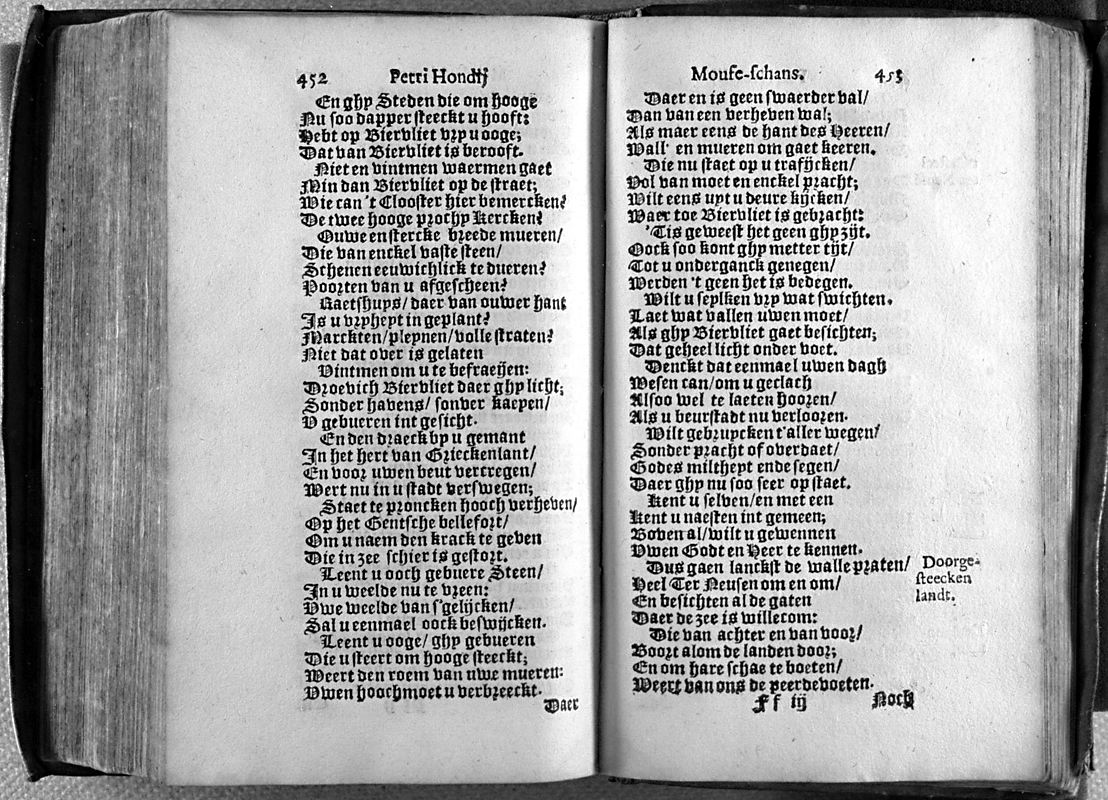 452 Petri Hondij
En ghy Steden die om hooge
Nu soo dapper steeckt u hooft:
Hebt op Biervliet vry u ooge;
Dat van Biervliet is berooft.
Niet en vintmen waermen gaet
Min dan Biervliet op de straet;
Wie can 't Clooster hier bemercken?
De twee hooge prochy Kercken?
Ouwe en stercke breede mueren/
Die van enckel vaste steen/
Schenen eeuwichlick te dueren?
Poorten van u afgescheen?
Raetshuys/ daer van ouwer hant
Is u vryheyt in geplant?
Marckten/pleynen/volle straten?
Niet dat over is gelaten
Vintmen om u te befraeyen:
Droevich Biervliet daer ghy licht;
Sonder havens/ sonder kaepen/
V gebueren int gesicht.
En den draeck by u gemant
In het hert van Grieckenlant/
En voor uwen beut vertregen/
Wert nu in u stadt verswegen;
Staet te proncken hooch verheven/
Op het Gentsche bellefort/
Om u naem den krack te geven
Die in zee schier is gestort.
Leent u ooch gebuere Steen/
In u weelde nu te vreen:
Vwe weelde van s'gelijcken/
Sal u eenmael oock beswijcken.
Leent u ooge/ ghy gebueren
Die u steert om hooge steeckt;
Weert den roem van uwe mueren:
Vwen hoochmoet u verbreeckt.
Daer
Mouse-schans. 453
Daer en is geen swaerder val/
Dan van een verheven wal;
Als maer eens de hant des Heeren/
Wall' en mueren om gaet keeren.
Die nu staet op u trafijcken/
Vol van moet en enckel pracht;
Wilt eens uyt u deure kijcken/
Waer toe Biervliet is gebracht:
'Tis geweest het geen ghy zijt.
Oock soo kont ghy metter tijt/
Tot u onderganck genegen/
Werden 't geen het is bedegen.
Wilt u seylken vry wat swichten.
Laet wat vallen uwen moet/
Als ghy Biervliet gaet besichten;
Dat geheel licht onder voet.
Denckt dat eenmael uwen dagh
Wesen can/om u geclach
Alsoo wel te laeten hooren/
Als u beurstadt nu verlooren.
Wilt gebruycken t'aller wegen/
Sonder pracht of overdaet/
Godes miltheyt ende segen/
Daer ghy nu soo seer op staet.
Kent u selven/en met een
Kent u naesten int gemeen;
Boven al/wilt u gewennen
Vwen Godt en Heer te kennen.
Dus gaen lanckst de walle praten/
Heel Ter Neusen om en om/
En besichten al de gaten
Daer de zee is willecom:
Die van achter en van voor/
Boort alom de landen door;
En om hare schae te boeten/
Weert van ons de peerdevoeten.
Doorge-
steecken
landt.
Ff iij Noch